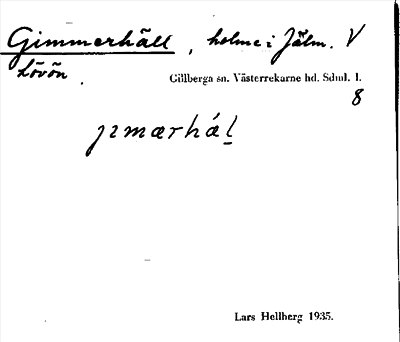 Gimmerhäll, holme i Jälm. V
Lövön.
Gillberga sn. Västerrekarne hd. Sdml. l.
8
jımærhá̀l̲
Lars Hellberg 1935.